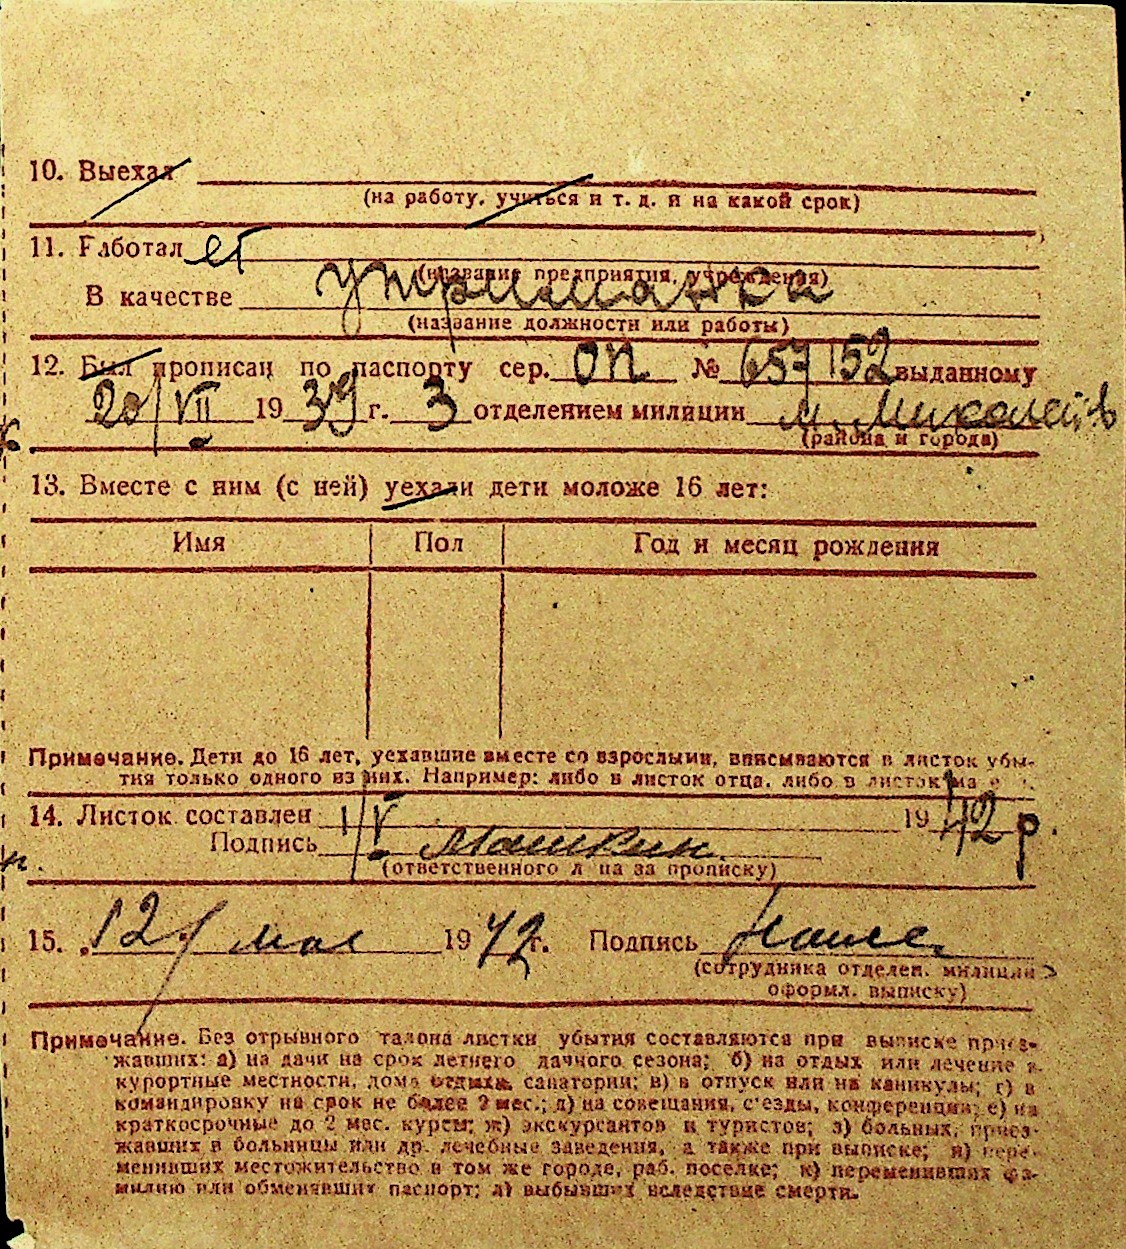 10. Выехал
(на работу, учиться и т. д. и на какой срок)
11. Работал ет
(название предприятия, учреждения)
В качестве утриманка
(название должности или работы)
12. Был прописан по паспорту сер. ОП № 657152 выданному
20/VII 1939 г. 3 отделением милиции м. Миколаїв
(района и города)
13. Вместе с ним (с ней) уехали дети моложе 16 лет:
Имя Пол Год и месяц рождения
Примечание. Дети до 16 лет, уехавшие вместе со взрослыми, вписываются в листок убы-
тия только одного из них. Например: либо в листок отца, либо в листок
14. Листок составлен 1/V 1942 р.
Подпись
(ответственного л па за прописку)
15. 12/ мая 1942 г. Подпись
(сотрудника отделен. милиции
оформл. выписку)
Примечание. Без отрывного талона листки убытия составляются при выписке приез-
жавших: а) на дачи на срок летнего дачного сезона; б) на отдых или лечение в
курортные местности, дома отдыха, санатории; в) в отпуск или на каникулы; г) в
командировку на срок не более 2 мес.; д) на совещания, с'езды, конференции; е) на
краткосрочные до 2 мес. курсы; ж) экскурсантов и туристов; з) больных, приез-
жавших в больницы или др. лечебные заведения, а также при выписке; и) пере-
менивших местожительство в том же городе, раб. поселке; к) переменивших фа-
милию или обменявших паспорт; л) выбывших вследствие смерти.